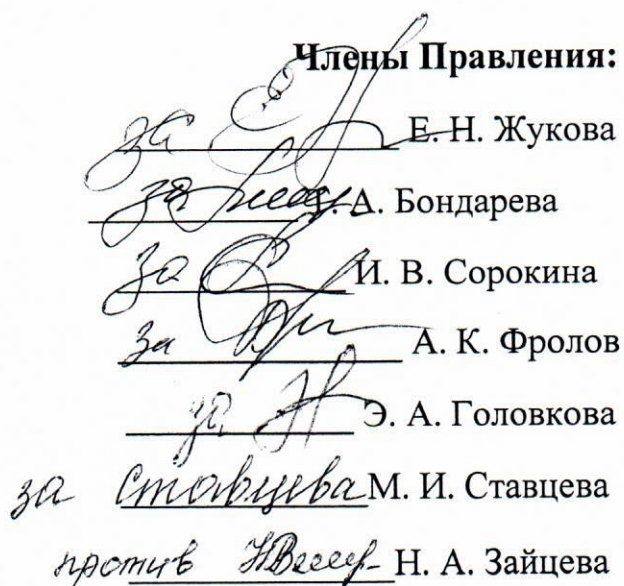 Члены Правления:
за Е. Н. Жукова
за А. Бондарева
за И. В. Сорокина
за А. К. Фролов
за Э. А. Головкова
за Ставцева М. И. Ставцева
против Н. А. Зайцева